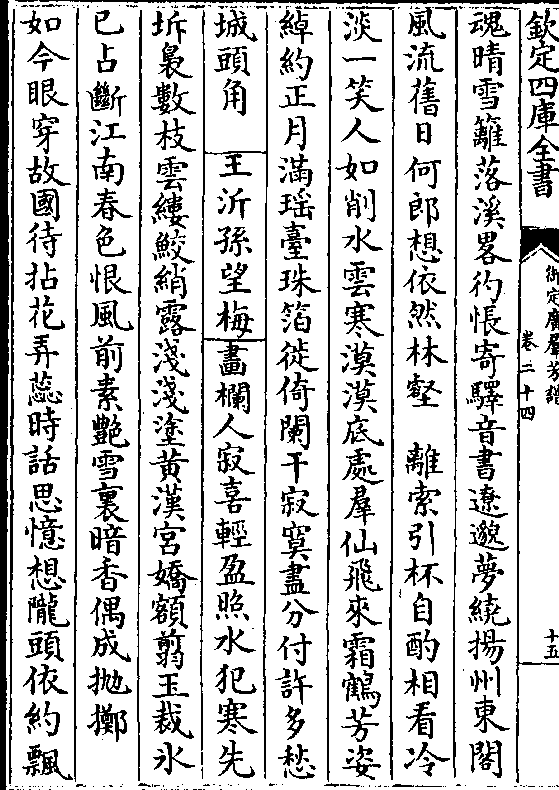 欽定四庫全書
御定廣羣芳譜
卷二十四
十五
魂晴雪籬落溪畧彴悵寄驛音書遼邈夢繞揚州東閣
風流舊日何郎想依然林壑　離索引杯自酌相看冷
淡一笑人如削水雲寒漠漠底處羣仙飛來霜鶴芳姿
綽約正月滿瑶臺珠箔徙倚闌干寂寞盡分付許多愁
城頭角　王沂孫望梅畫欄人寂喜輕盈照水犯寒先
坼裊數枝雲縷鮫綃露淺淺塗黃漢宮嬌額翦玉裁氷
已占斷江南春色恨風前素艶雪裏暗香偶成抛擲
如今眼穿故國待拈花弄蕊時話思憶想隴頭依約飄